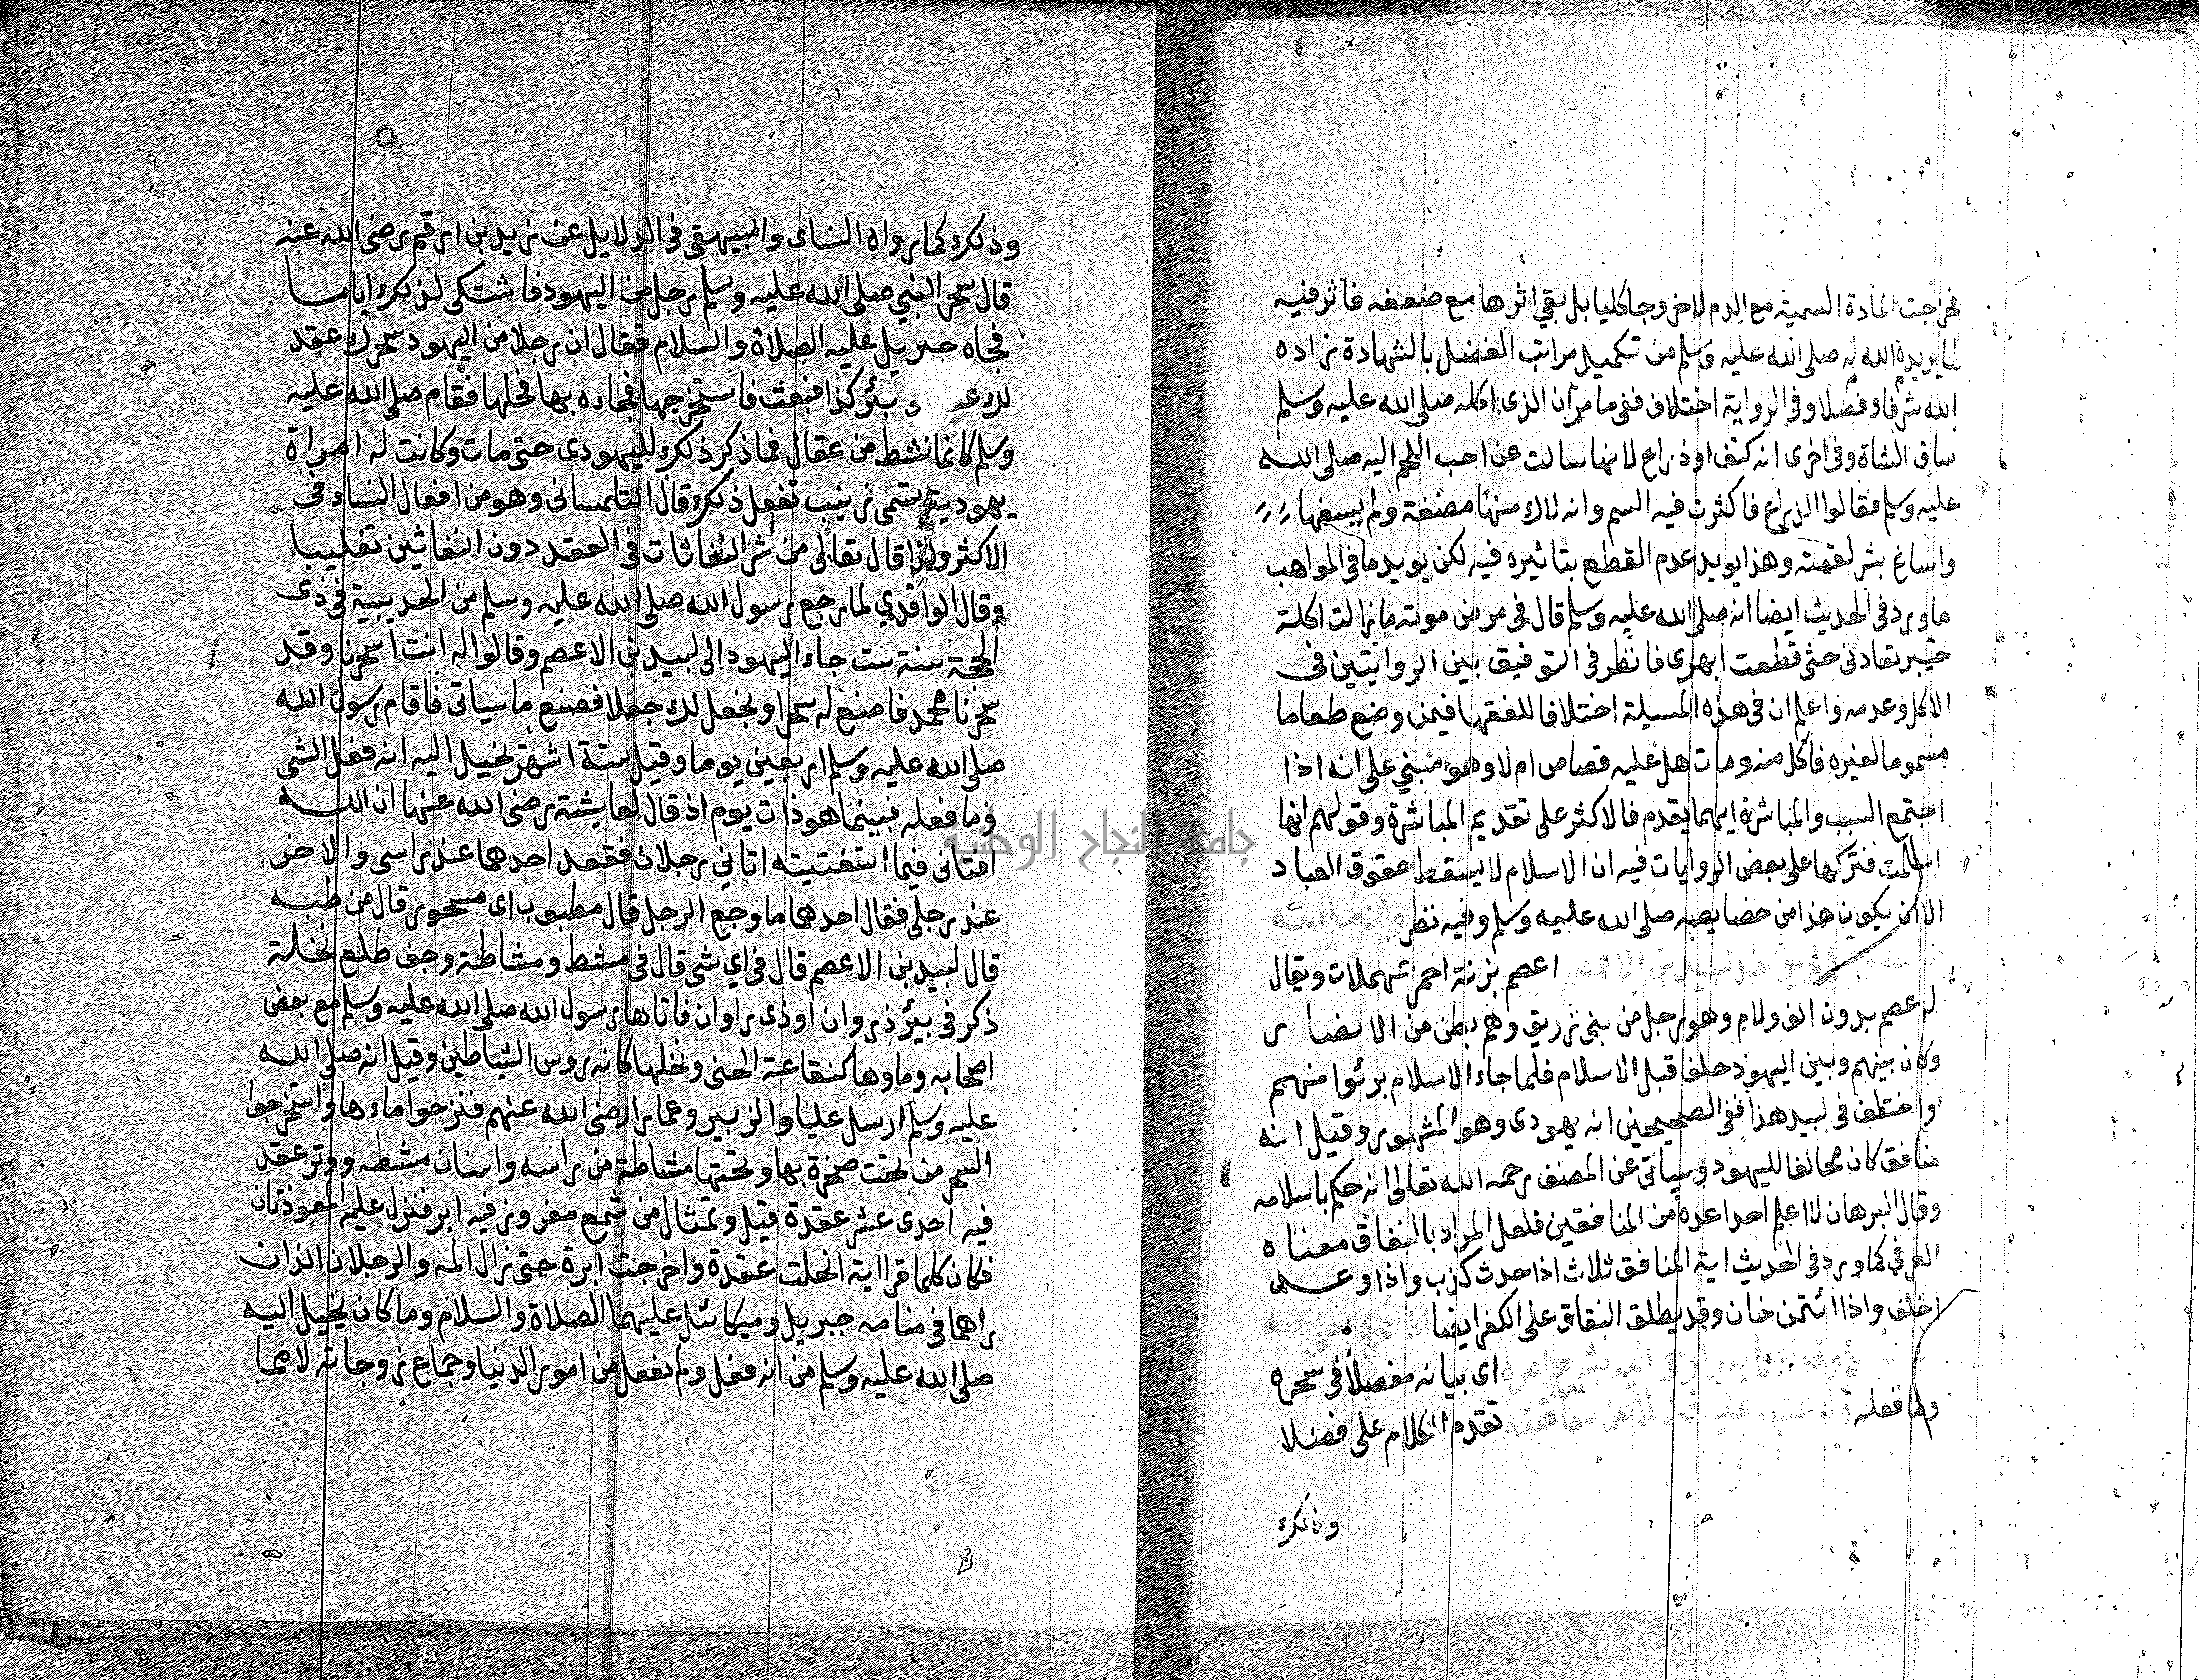 فخرجت المادة السمية مع الدم لاخروجا كليا بل بقي اثرها مع ضعفه فاثر فيه
لما يريده الله له صلى الله عليه وسلم من تكميل مراتب الفضل بالشهادة زاده
الله شرفا وفضلا وفى الرواية اختلاف ففى ما مر ان الذى اكله صلى الله عليه وسلم
ساق الشاة وفى اخرى انه كتف او ذراع لانها سالت عن احب اللحم اليه صلى الله
عليه وسلم فقالوا الذراع فاكثرت فيه السم وانه لاك منها مضغة ولم يسغها
واساغ بشر لقمته وهذا يويد عدم القطع بتاثيره فيه لكن يويد ما فى المواهب
ما ورد فى الحديث ايضا انه صلى الله عليه وسلم قال فى مرض موته ما زالت اكلة
خيبر تعادنى حتى قطعت ابهرى فانظر فى التوفيق بين الروايتين فى
الاكل وعدمه واعلم ان فى هذه المسيلة اختلافا للفقها فيمن وضع طعاما
مسموما لغيره فاكل منه ومات هل عليه قصاص ام لا وهو مبني على انه اذا
اجتمع السبب والمباشرة ايهما يقدم فالاكثر على تقديم المباشرة وقولهم انها
اسلمت فتركها على بعض الروايات فيه ان الاسلام لا يسقط حقوق العباد
الا ان يكون هذا من خصايصه صلى الله عليه وسلم وفيه نظر
اعصم بزنة احمر بمهملات ويقال
له عصم بدون الف ولام وهو رجل من بنى زريق وهم بطن من الانصار
وكان بينهم وبين اليهود حلف قبل الاسلام فلما جاء الاسلام برئوا منهم
واختلف فى لبيد هذا ففى الصحيحين انه يهودى وهو المشهور وقيل انه
منافق كان مخالفا لليهود وسياتى عن المصنف رحمه الله تعالى انه حكم باسلامه
وقال البرهان لا اعلم احدا عده من المنافقين فلعل المراد بالنفاق معناه
العرفى كما ورد فى الحديث اية المنافق ثلاث اذا حدث كذب واذا وعد
اخلف واذا ائتمن خان وقد يطلق النفاق على الكفر ايضا
اى بيانه مفصلا فى سحره
وما فعله تقدم الكلام على فضلا
وذلك
وذلك كما رواه النساى والبيهقى فى الدلايل عن زيد بن ارقم رضى الله عنه
قال سحر النبي صلى الله عليه وسلم رجل من اليهود فاشتكى لذلك اياما
فجاه جبريل عليه الصلاة والسلام فقال ان رجلا من اليهود سحرك عقد
لك بئر كذا فبعث فاستخرجها فجاده بها فحلها فقام صلى الله عليه
وسلم كانما نشط من عقال فما ذكر ذلك لليهودى حتى مات وكانت له امراة
يهودية تسمى زينب تفعل ذلك قال التلمسانى وهو من افعال النساء فى
الاكثر ولذا قال تعالى من شر النفاثات فى العقد دون النفاثين تغليبا
وقال الواقدي لما رجع رسول الله صلى الله عليه وسلم من الحديبية فى ذى
الحجة سنة ست جاء اليهود الى لبيد بن الاعصم وقالوا له انت اسحرنا وقد
سحرنا محمد فاصنع له سحرا ونجعل لك جعلا فصنع ما سياتى فاقام رسول الله
صلى الله عليه وسلم اربعين يوما وقيل ستة اشهر يخيل اليه انه فعل الشى
وما فعله فبينما هو ذات يوم اذ قال لعايشة رضى الله عنها ان الله
افتانى فيما استفتيته اتاني رجلان فقعد احدهما عند راسى والاخر
عند رجلى فقال احدهما ما وجع الرجل قال مطبوب اى مسحور قال من طبه
قال لبيد بن الاعصم قال فى اي شى قال فى مشط ومشاطة وجف طلع نخلة
ذكر فى بيئر ذروان او ذى راوان فاتاها رسول الله صلى الله عليه وسلم مع بعض
اصحابه وماوها كنقاعة الحنى ونخلها كانه روس الشياطين وقيل انه صلى الله
عليه وسلم ارسل عليا والزبير وعمارا رضى الله عنهم فنزحوا ماءها واستخرجوا
السحر من تحت صخرة بها وتحتها مشاطة من راسه واسنان مشطه ووتر عقد
فيه احدى عشر عقدة قيل وتمثال من شمع مغروز فيه ابر فنزل عليه المعوذتان
فكان كلما قرا اية انحلت عقدة واخرجت ابرة حتى زال المه والرجلان الذان
راهما فى منامه جبريل وميكائل عليهما الصلاة والسلام وما كان يخيل اليه
صلى الله عليه وسلم من انه فعل ولم يفعل من امور الدنيا وجماع زوجاته لاهما
جامعة النجاح الوطنية